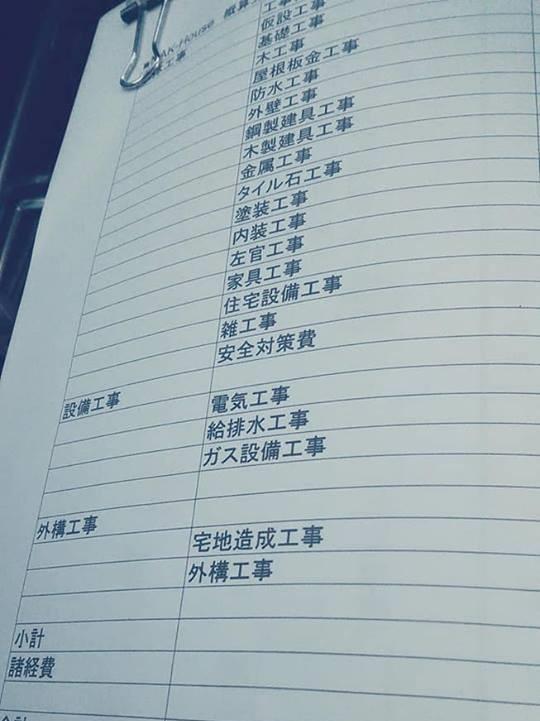 K-House 概算
工事
仮設工事
基礎工事
木工事
屋根板金工事
防水工事
外壁工事
鋼製建具工事
木製建具工事
金属工事
タイル石工事
塗装工事
内装工事
左官工事
家具工事
住宅設備工事
雑工事
安全対策費
設備工事 電気工事
給排水工事
ガス設備工事
外構工事 宅地造成工事
外構工事
小計
諸経費